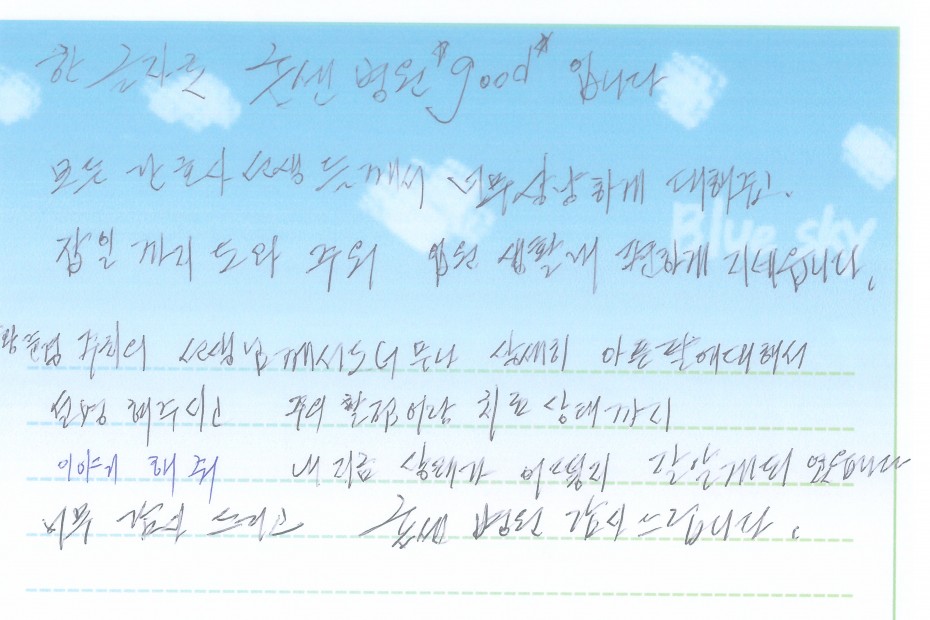 한 글자로 굿센 병원 "good" 입니다
모든 간호사 선생 들께서 너무 상냥하게 대해주고.
잡일 까지 도와 주워 입원 생활에 편하게 지내습니다.
Blue sky
주치의 선생님께서도 너무나 상세히 아픈 팔에대해서
설명 해주시고 주의 할점 이랑 치료 상태까지
이야기 해 줘 내 지금 상태가 어떻지 잘 알게되었습니다
너무 감사 드리고 굿센 병원 감사드립니다.